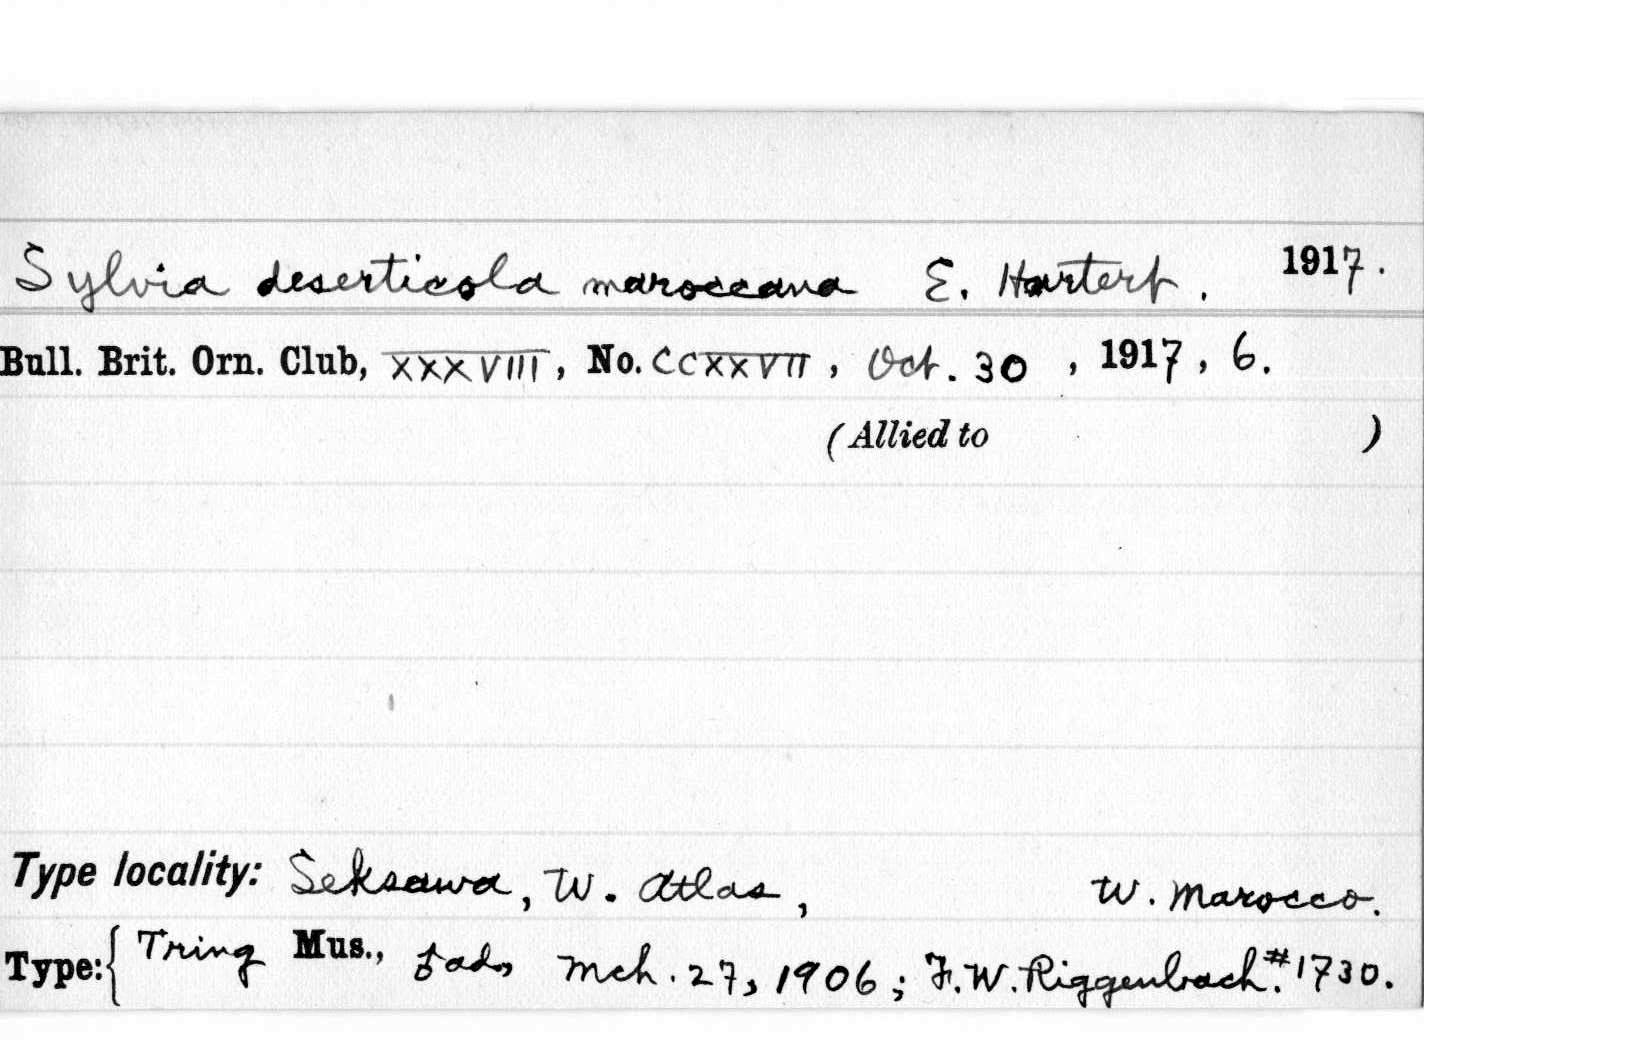 Sylvia deserticola maroccana E. Hartert. 1917.
Bull. Brit. Orn. Club, XXXVIII, No. CCXXVII, Oct. 30, 1917, 6.
(Allied to )
Type locality: Seksawa, W. Atlas, W. Marocco.
Type: { Tring Mus., ad., Mch. 27, 1906; F. W. Riggenbach. #1730.